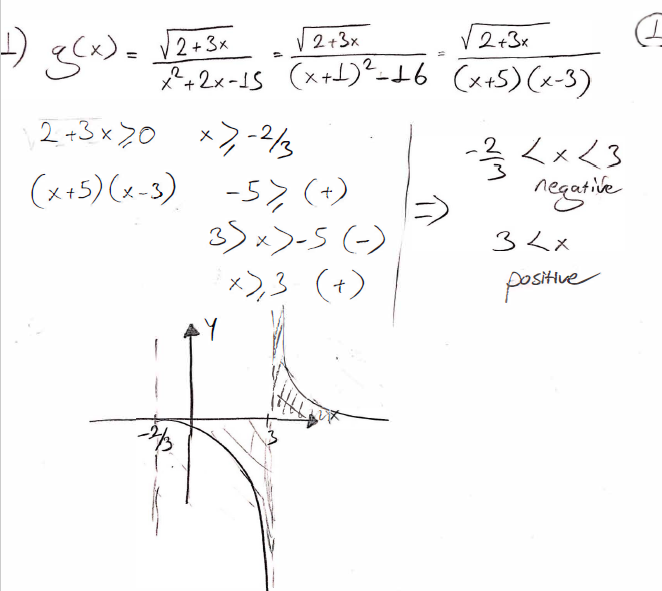 1) g(x) = √(2+3x) / (x²+2x-15) = √(2+3x) / ((x+1)²-16) = √(2+3x) / ((x+5)(x-3))
2+3x ≥ 0    x ≥ -2/3
(x+5)(x-3)    -5 ≥ (+)
3 > x > -5 (-)
x ≥ 3 (+)
⇒
-2/3 < x < 3
negative
3 < x
positive
y
x
-2/3
3